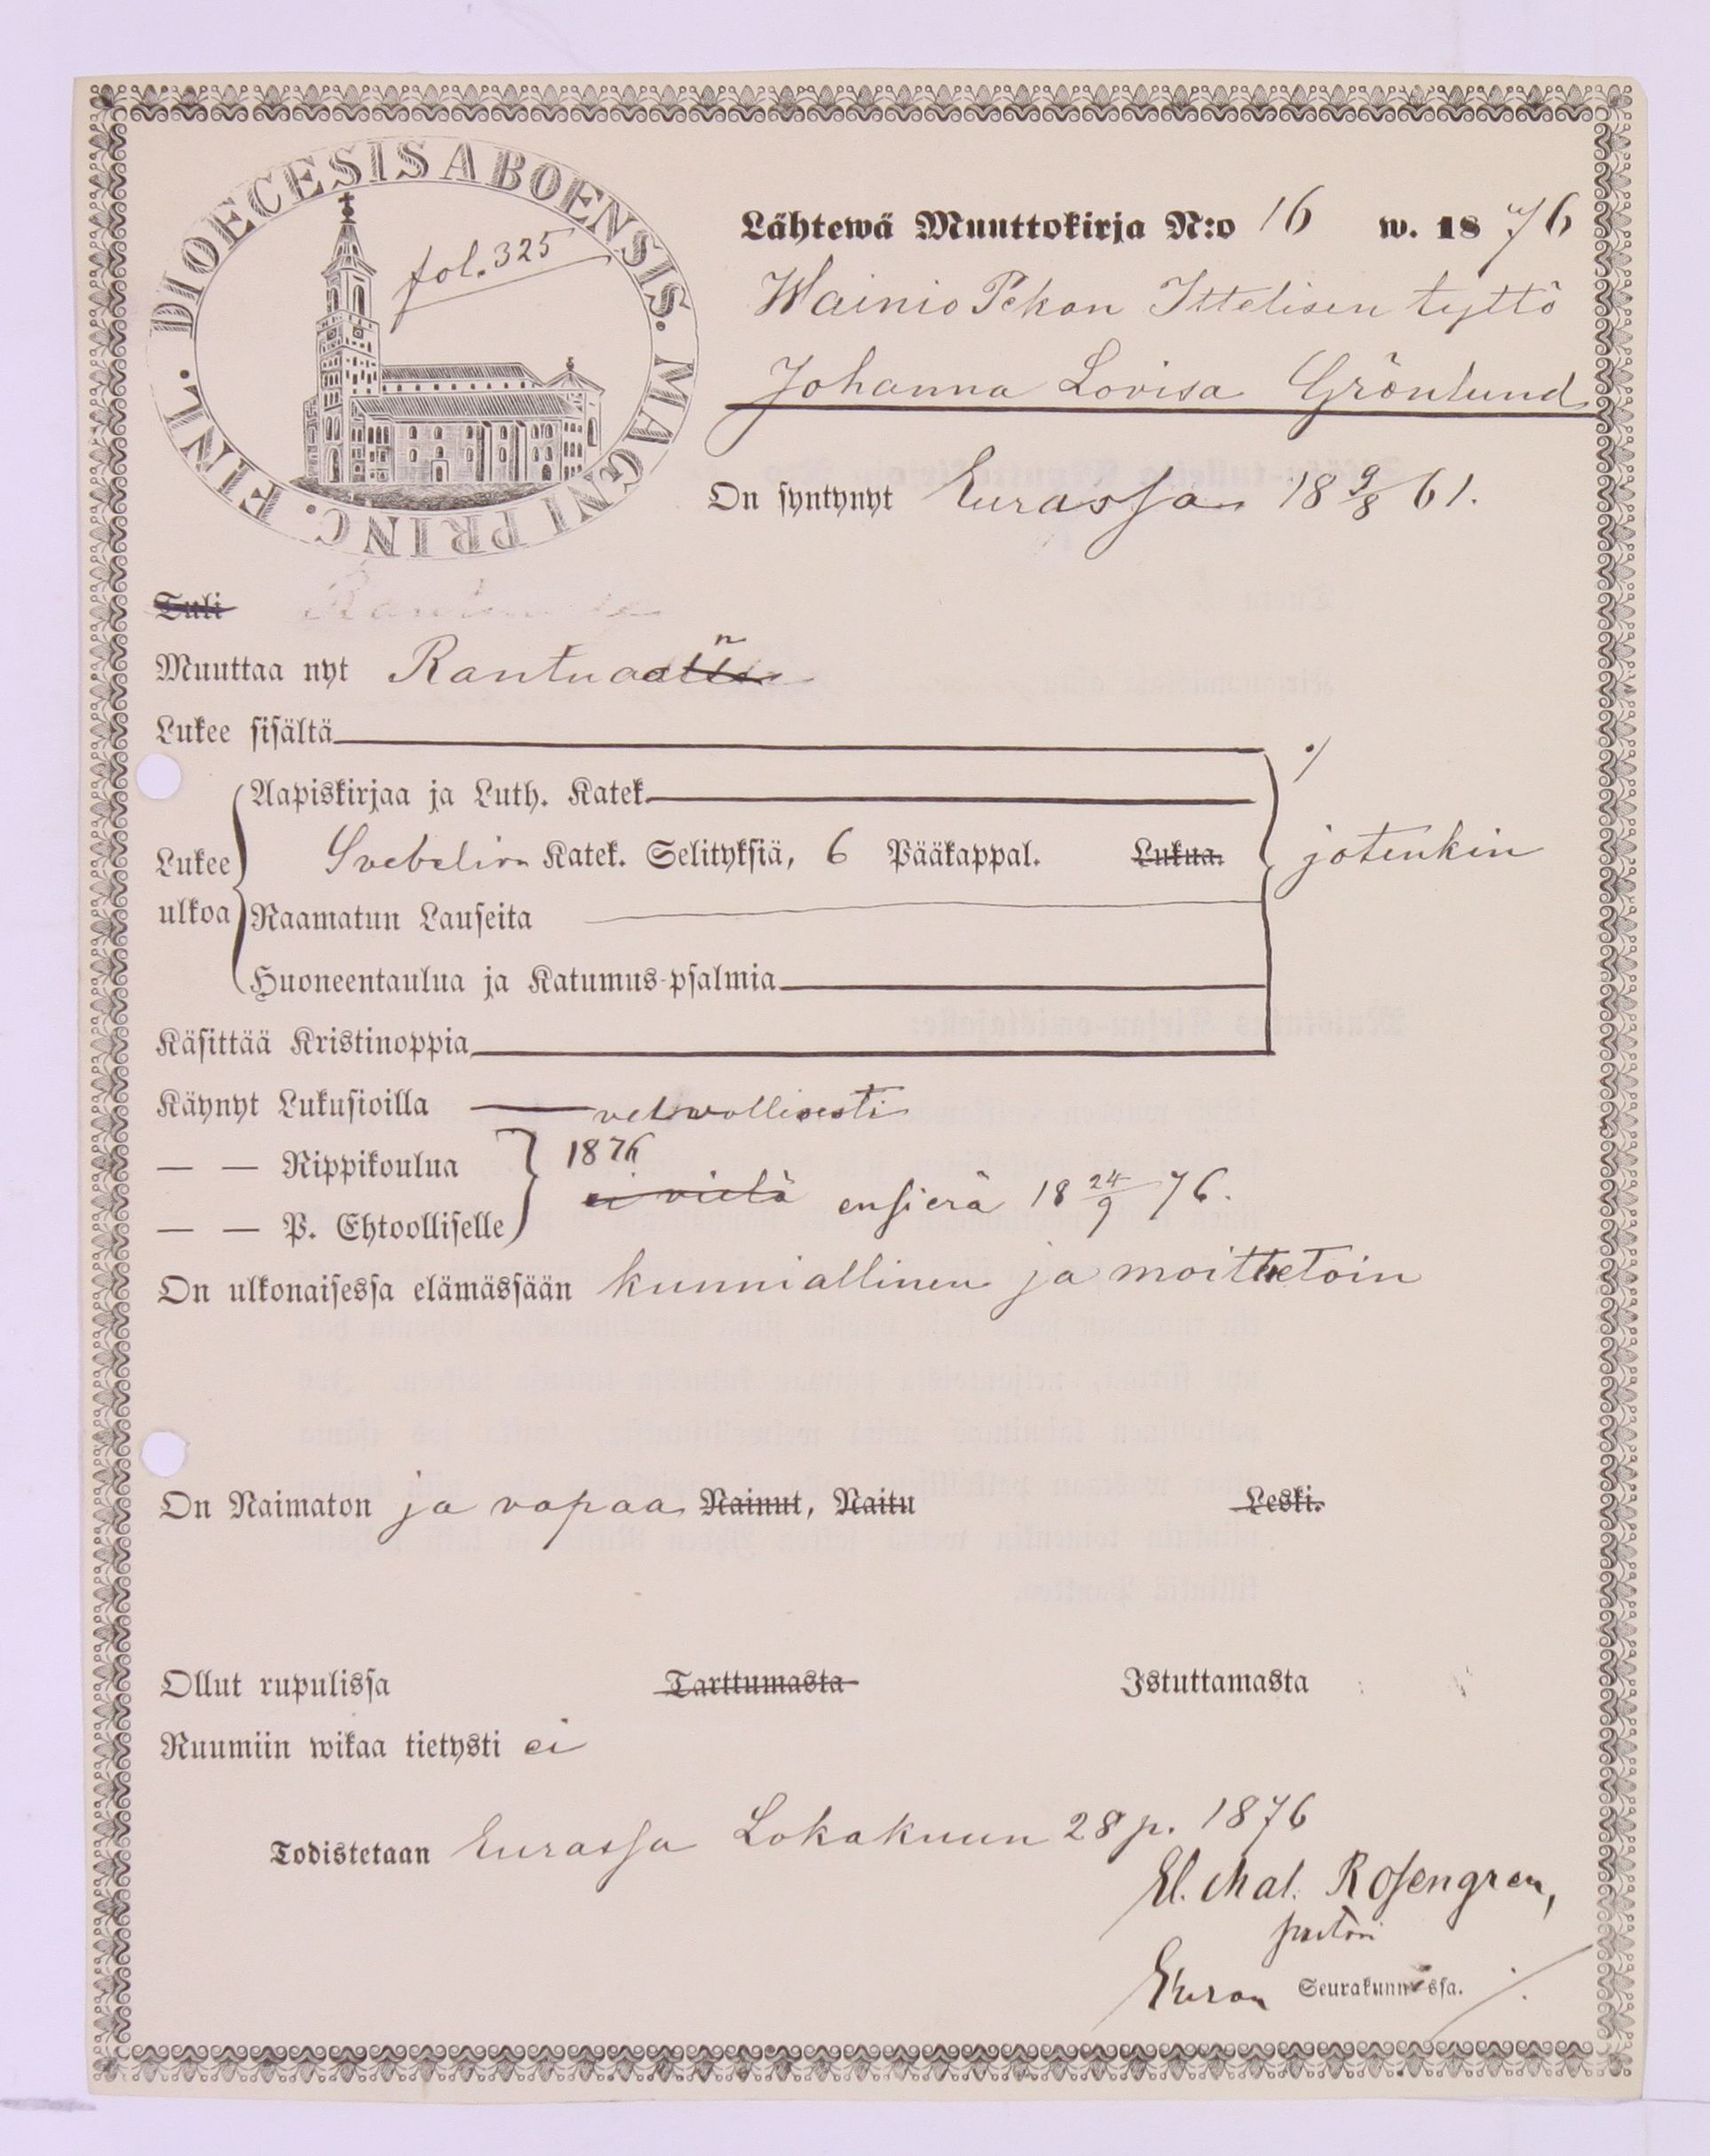 DIOECESIS ABOENSIS. MAGNI PRINC. FINL.
fol. 325
Lähtewä Muuttokirja N:o 16 w. 1876
Wainio Pekon Ittelisen tyttö
Johanna Lovisa Grönlund
On syntynyt Eurassa 18 9/8 61.
Tuli
Muuttaa nyt Rantuaan
Lukee sisältä
Aapiskirjaa ja Luth. Katek.
Lukee ulkoa Svebelion Katek. Selityksiä, 6 Pääkappal. Lukua. jotenkin
Raamatun Lauseita
Huoneentaulua ja Katumus-psalmia
Käsittää Kristinoppia
Käynyt Lukusioilla velwollisesti
— — Rippikoulua 1876
ei vielä ensierä 18 24/9 76.
— — P. Ehtoolliselle
On ulkonaisessa elämässään kunniallinen ja moittetoin
On Naimaton ja vapaa Nainut, Naitu Leski.
Ollut rupulissa Tarttumasta Istuttamasta
Ruumiin wikaa tietysti ei
Todistetaan Eurassa Lokakuun 28 p. 1876
El. Mal. Rosengren,
pastori
Euran Seurakunnassa.